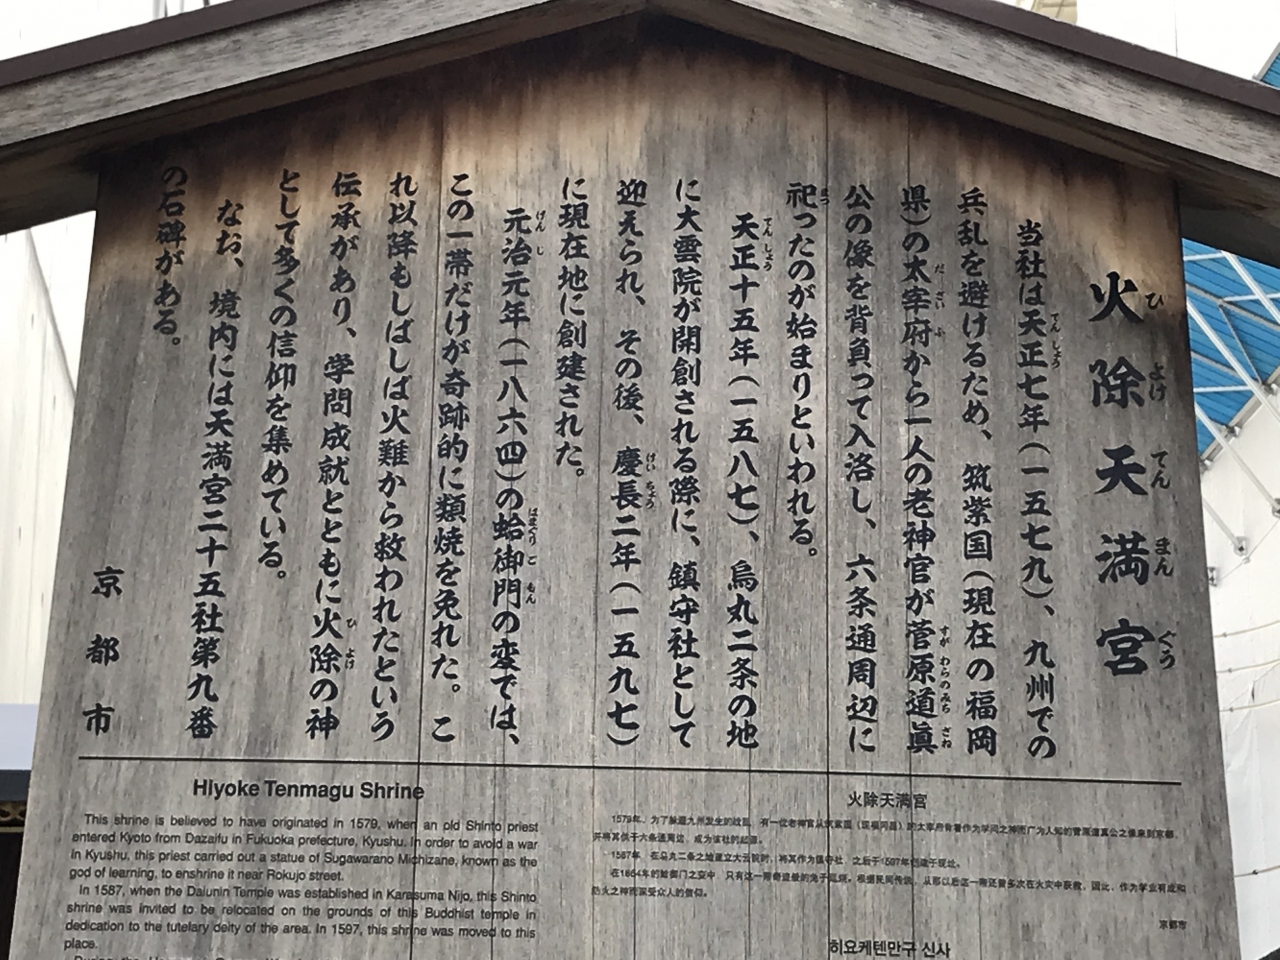 火除天満宮
ひ よけ てん まん ぐう
当社は天正七年（一五七九）、九州での
兵乱を避けるため、筑紫国（現在の福岡
県）の太宰府から一人の老神官が菅原道眞
公の像を背負って入洛し、六条通周辺に
祀ったのが始まりといわれる。
天正十五年（一五八七）、烏丸二条の地
に大雲院が開創される際に、鎮守社として
迎えられ、その後、慶長二年（一五九七）
に現在地に創建された。
元治元年（一八六四）の蛤御門の変では、
この一帯だけが奇跡的に類焼を免れた。こ
れ以降もしばしば火難から救われたという
伝承があり、学問成就とともに火除の神
として多くの信仰を集めている。
なお、境内には天満宮二十五社第九番
の石碑がある。
京都市
Hiyoke Tenmagu Shrine
This shrine is believed to have originated in 1579, when an old Shinto priest
entered Kyoto from Dazaifu in Fukuoka prefecture, Kyushu. In order to avoid a war
in Kyushu, this priest carried out a statue of Sugawarano Michizane, known as the
god of learning, to enshrine it near Rokujo street.
In 1587, when the Daiunin Temple was established in Karasuma Nijo, this Shinto
shrine was invited to be relocated on the grounds of this Buddhist temple in
dedication to the tutelary deity of the area. In 1597, this shrine was moved to this
place.
火除天满宫
1579年，为了躲避九州发生的战乱，有一位老神官从筑紫国（现福冈县）的太宰府背着作为学问之神而广为人知的菅原道真公之像来到京都，
并将其供于六条通周边，成为该社的起源。
1587年，在乌丸二条之地建立大云院时，将其作为镇守社，之后于1597年创建于现址。
在1864年的蛤御门之变中，只有这一带奇迹般的免于延烧。根据民间传说，从那以后这一带还曾多次在火灾中获救，因此，作为学业有成和
防火之神而深受众人的信仰。
京都市
히요케텐만구 신사